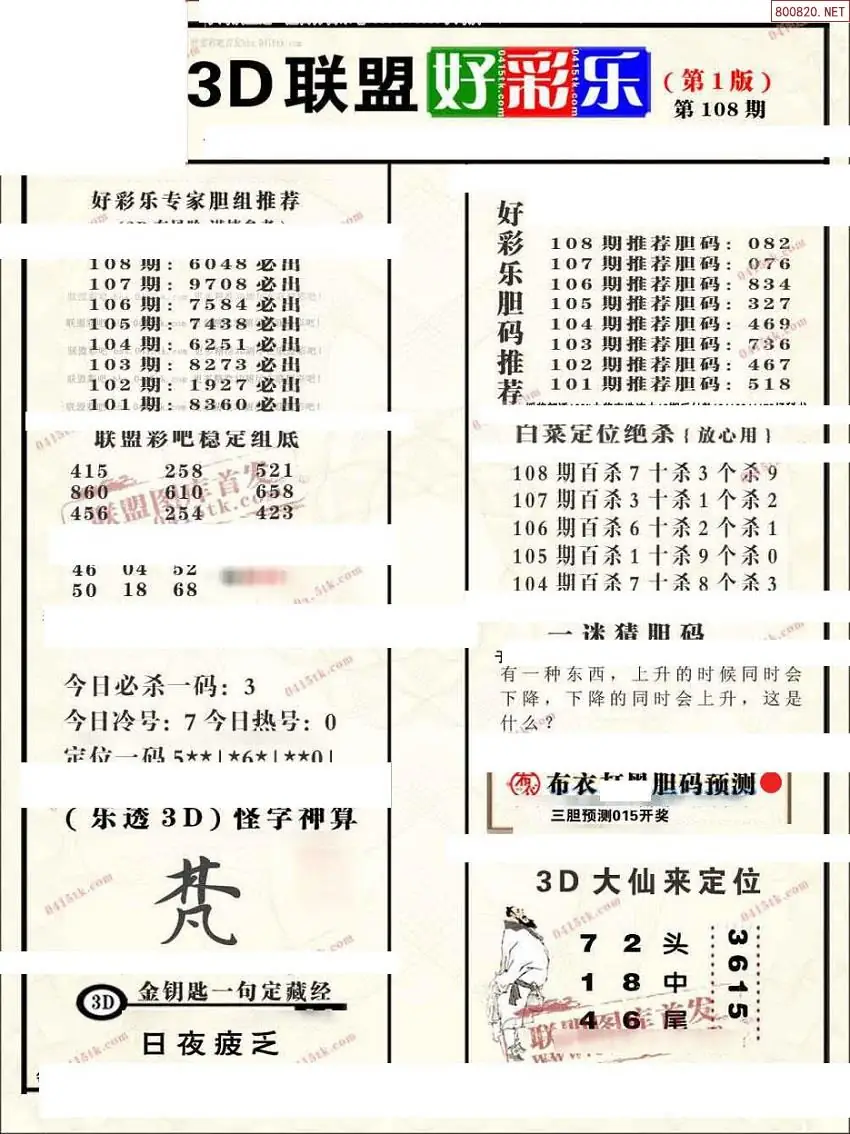 800820.NET
3D联盟好彩乐
(第1版)
第108期
好彩乐专家胆组推荐
108期:6048必出
107期:9708必出
106期:7584必出
105期:7438必出
104期:6251必出
103期:8273必出
102期:1927必出
101期:8360必出
联盟彩吧稳定组底
415 258 521
860 610 658
456 254 423
46 04 52
50 18 68
今日必杀一码:3
今日冷号:7 今日热号:0
定位一码 5**|*6*|**0|
(乐透3D)怪字神算
梵
3D
金钥匙一句定藏经
日夜疲乏
好彩乐胆码推荐
108期推荐胆码:082
107期推荐胆码:076
106期推荐胆码:834
105期推荐胆码:327
104期推荐胆码:469
103期推荐胆码:736
102期推荐胆码:467
101期推荐胆码:518
白菜定位绝杀{放心用}
108期百杀7十杀3个杀9
107期百杀3十杀1个杀2
106期百杀6十杀2个杀1
105期百杀1十杀9个杀0
104期百杀7十杀8个杀3
一迷猜胆码
有一种东西,上升的时候同时会
下降,下降的同时会上升,这是
什么?
布衣 胆码预测
三胆预测015开奖
3D大仙来定位
7 2 头
1 8 中
4 6 尾
3615
联盟图库首发
0415tk.com